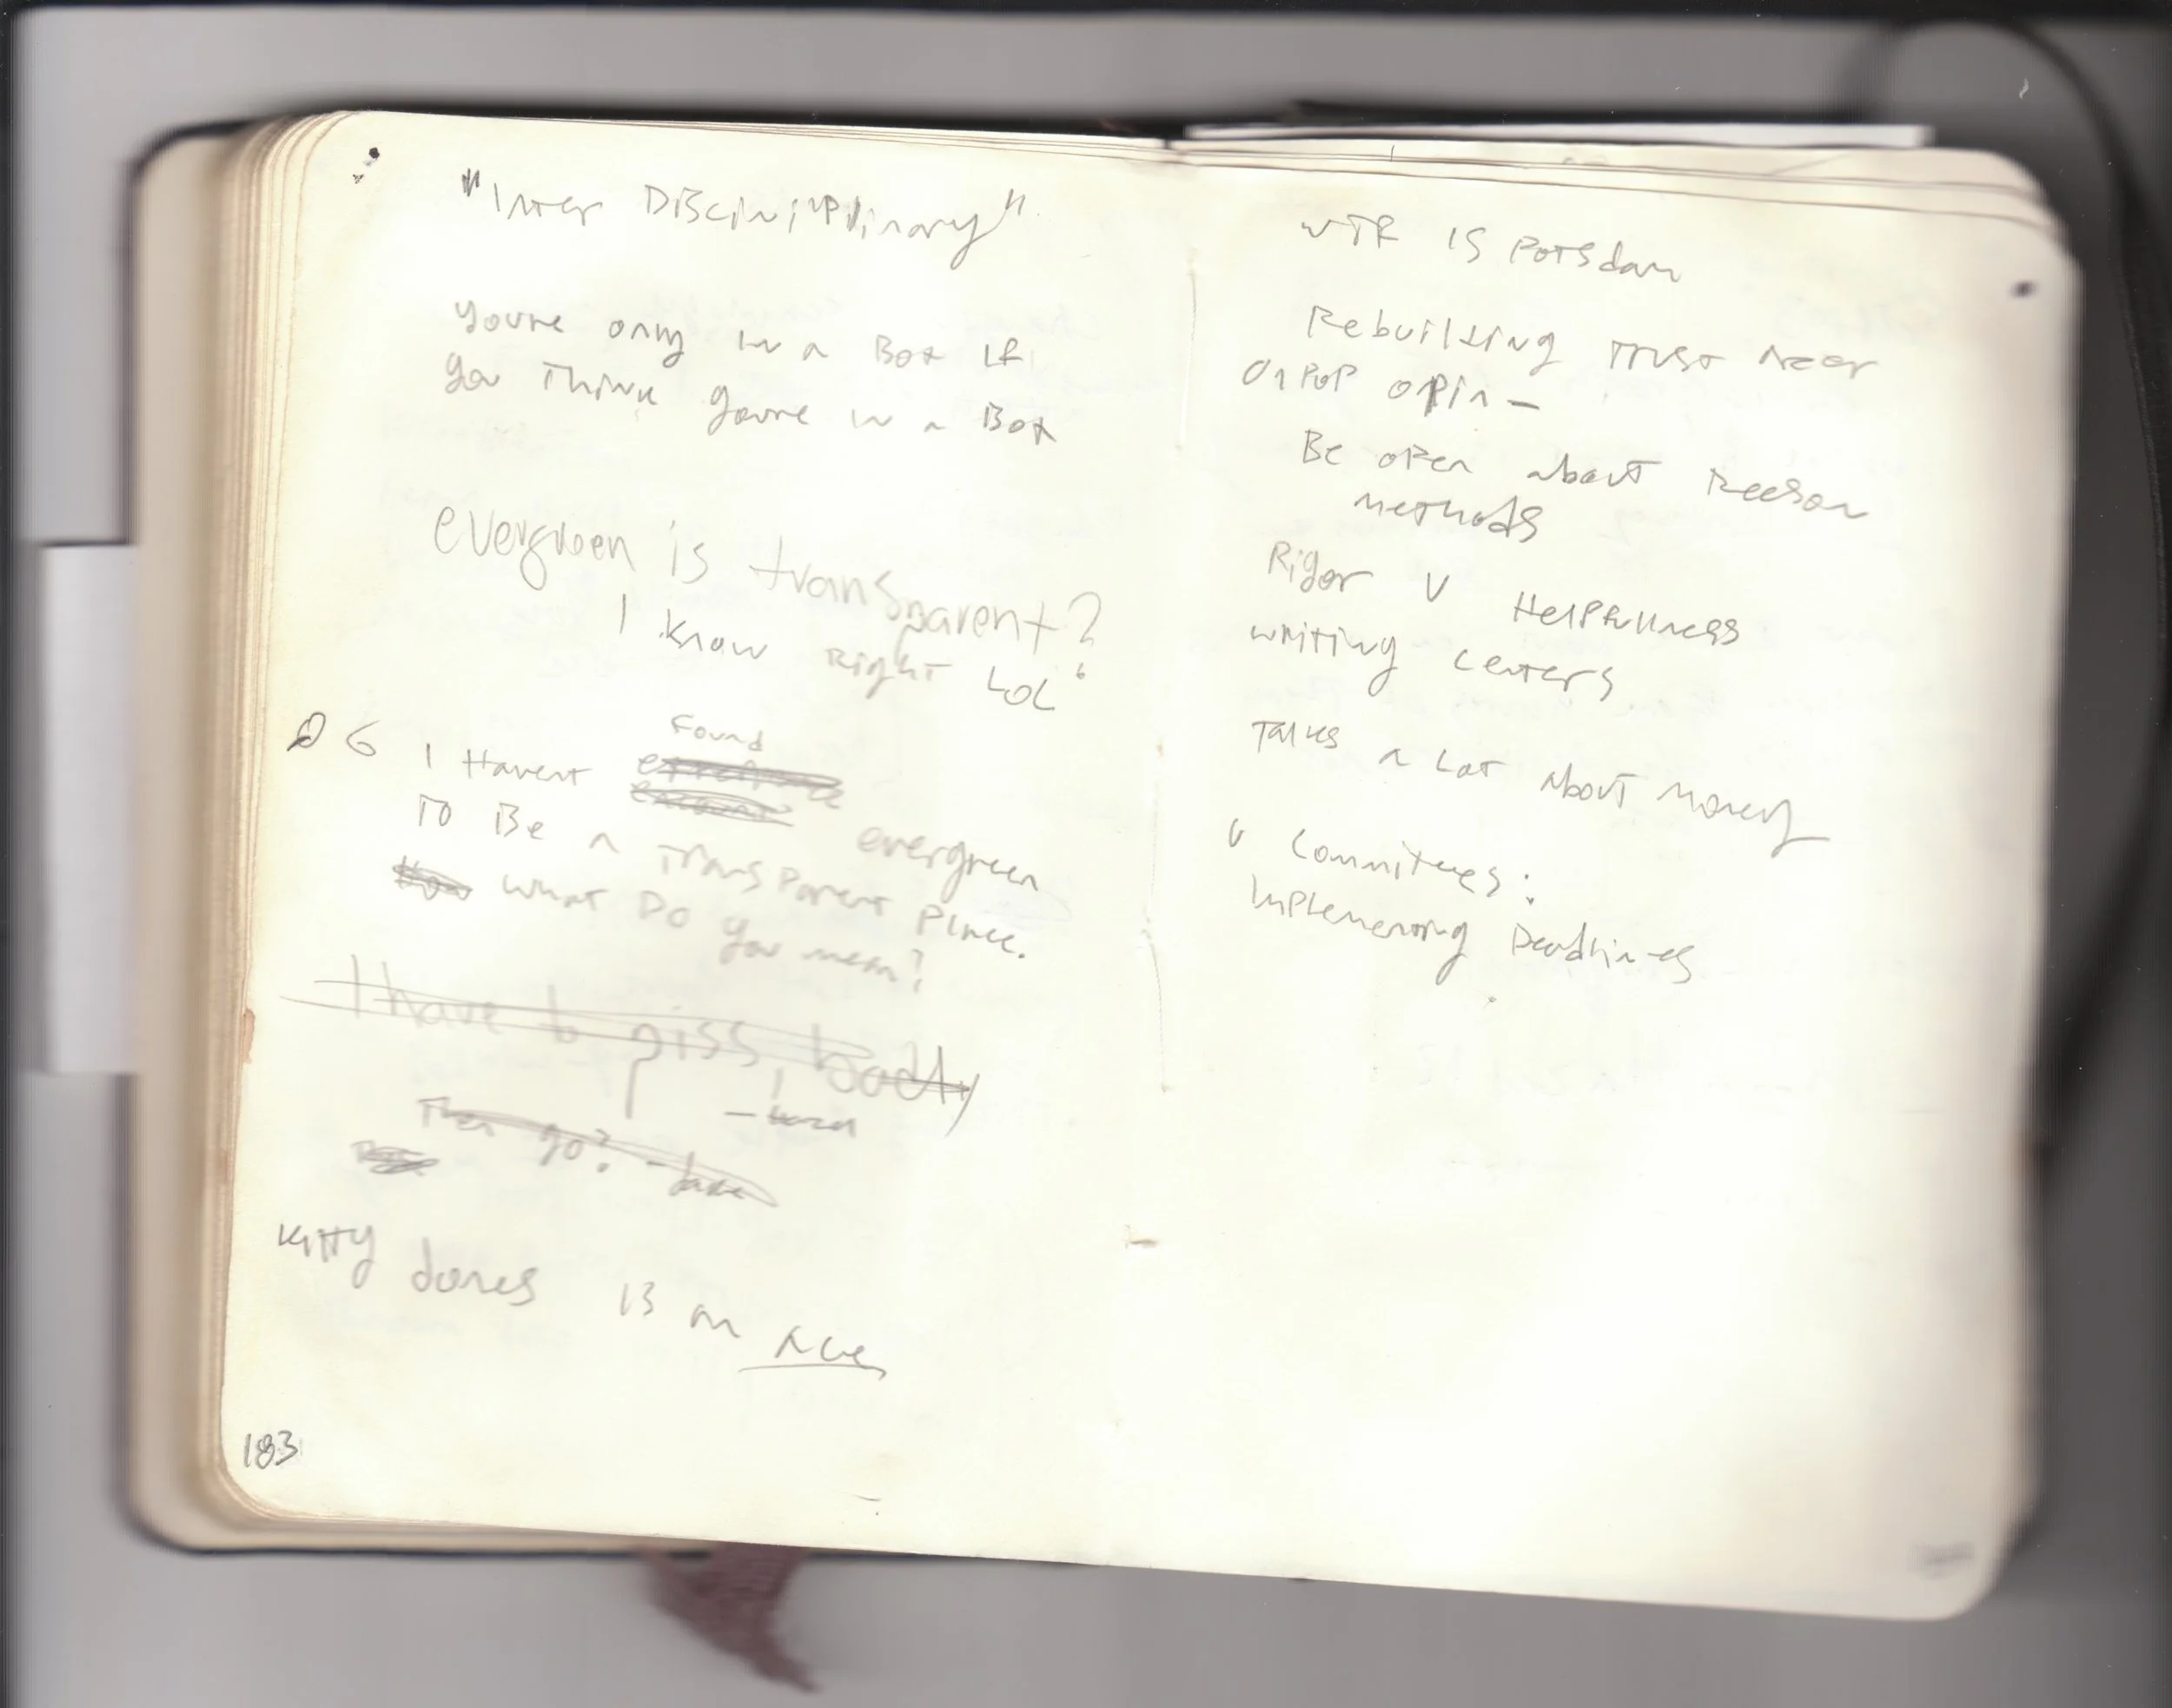 "Inter Disciniplinary"
Youre only in a Box if
you Think youre in a Box
evergreen is transparent?
I know Right LOL
6 I Havent Found
evergreen
To Be a TransParent Place.
What Do you mean?
I have to piss badly
Then go? - Jake
Kitty Jones is an Ace
183
WTF IS Potsdam
Rebuilding Trust
On POP opin-
Be open about
methods
Rigor V Helpfullness
writing centers
Talks a Lot About Money
Committees:
Implemening Deadlines